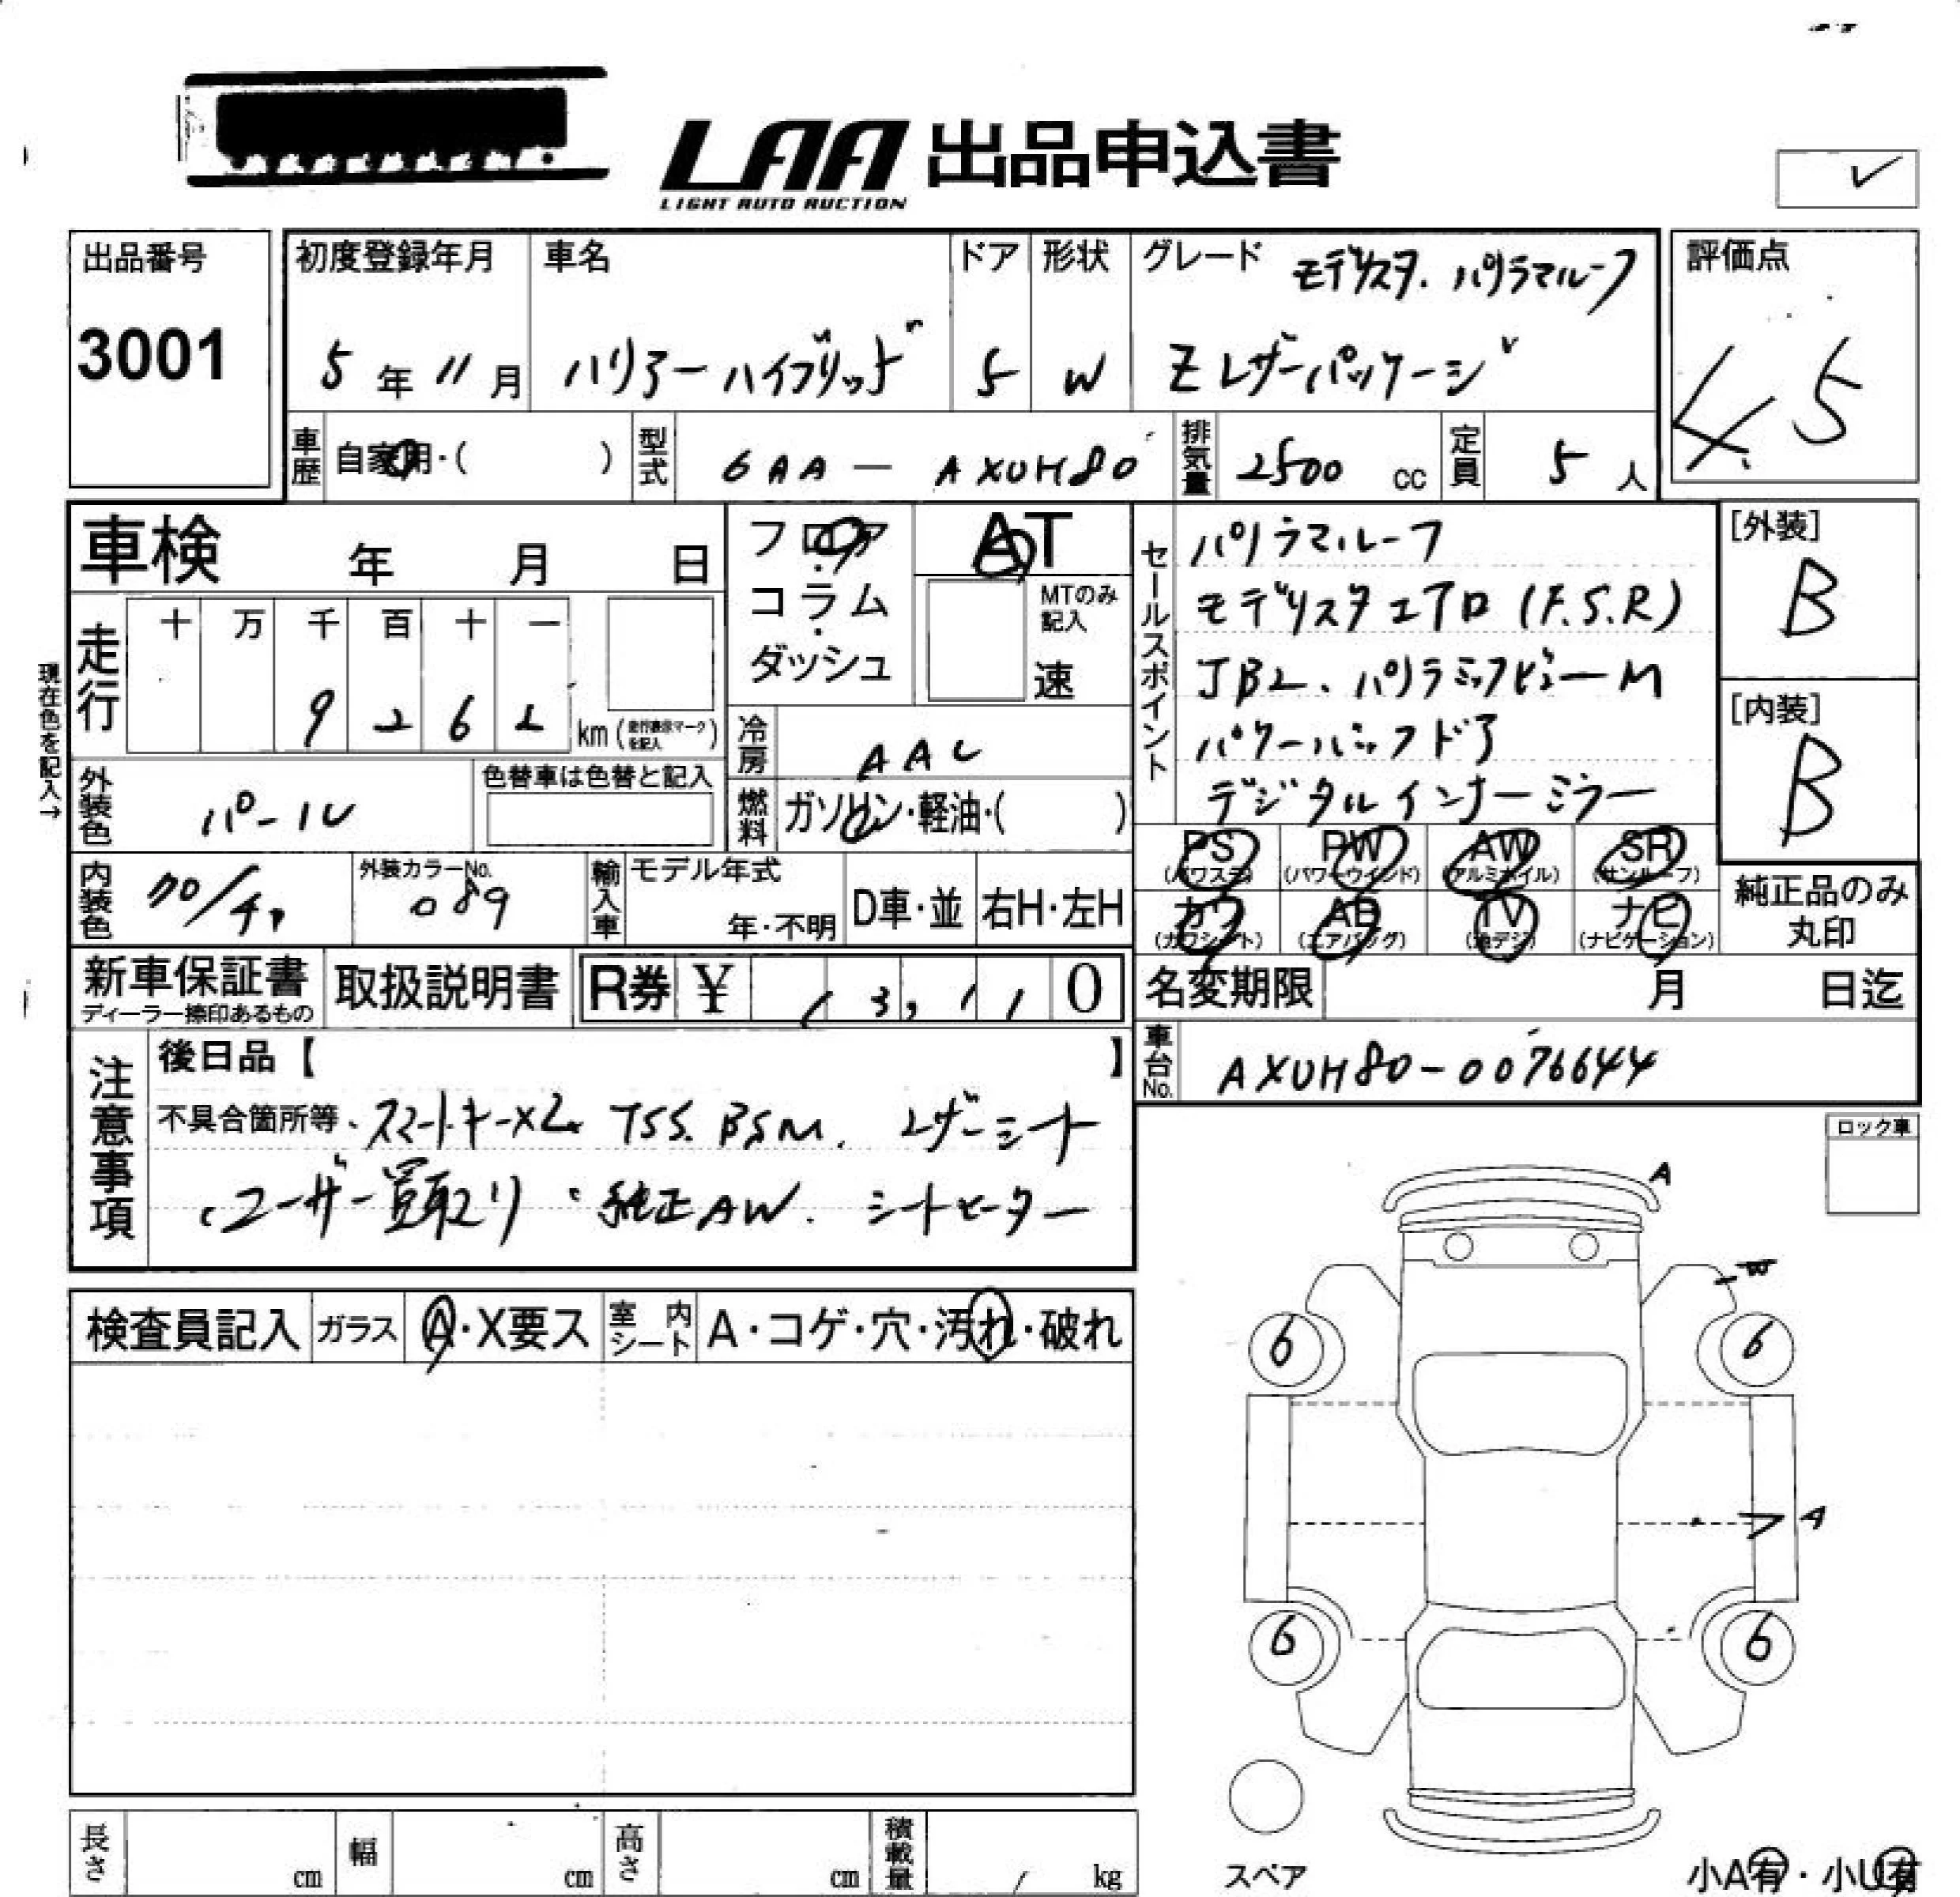 LAA 出品申込書
LIGHT AUTO AUCTION
✓
出品番号
3001
初度登録年月
5年11月
車名
ハリアーハイブリッド
ドア
5
形状
W
グレード モデリスタ. パノラマルーフ
Zレザーパッケージ
評価点
4.5
車歴 自家用・( )
型式 6AA-AXUH80
排気量 2500 cc
定員 5人
車検 年 月 日
フロア・コラム・ダッシュ
AT
MTのみ記入
速
セールスポイント
パノラマルーフ
モデリスタエアロ(F.S.R)
JBL、パノラミックビューM
パワーバックドア
デジタルインナーミラー
[外装]
B
[内装]
B
現在色を記入→
走行
十 万 千 百 十 一
9 2 6 2 km(走行表示マークを記入)
冷房 AAC
燃料 ガソリン・軽油・( )
外装色 パール
色替車は色替と記入
内装色 クロ/チャ
外装カラーNo.
089
輸入車
モデル年式
年・不明
D車・並
右H・左H
PS (パワステ)
PW (パワーウインド)
AW (アルミホイル)
SR (サンルーフ)
カワ (カワシート)
AB (エアバッグ)
TV (地デジ)
ナビ (ナビゲーション)
純正品のみ丸印
新車保証書
ディーラー捺印あるもの
取扱説明書
R券 ¥ 13,110
名変期限 月 日迄
車台No. AXUH80-0076644
注意事項
後日品【 】
不具合箇所等、スマートキーX2. TSS. BSM. レザーシート
・ユーザー買取り・純正AW. シートヒーター
ロック車
検査員記入
ガラス A・X要ス
室内シート A・コゲ・穴・汚れ・破れ
A
W
6
6
A
6
6
スペア
長さ cm
幅 cm
高さ cm
積載量 kg
小A有・小U有